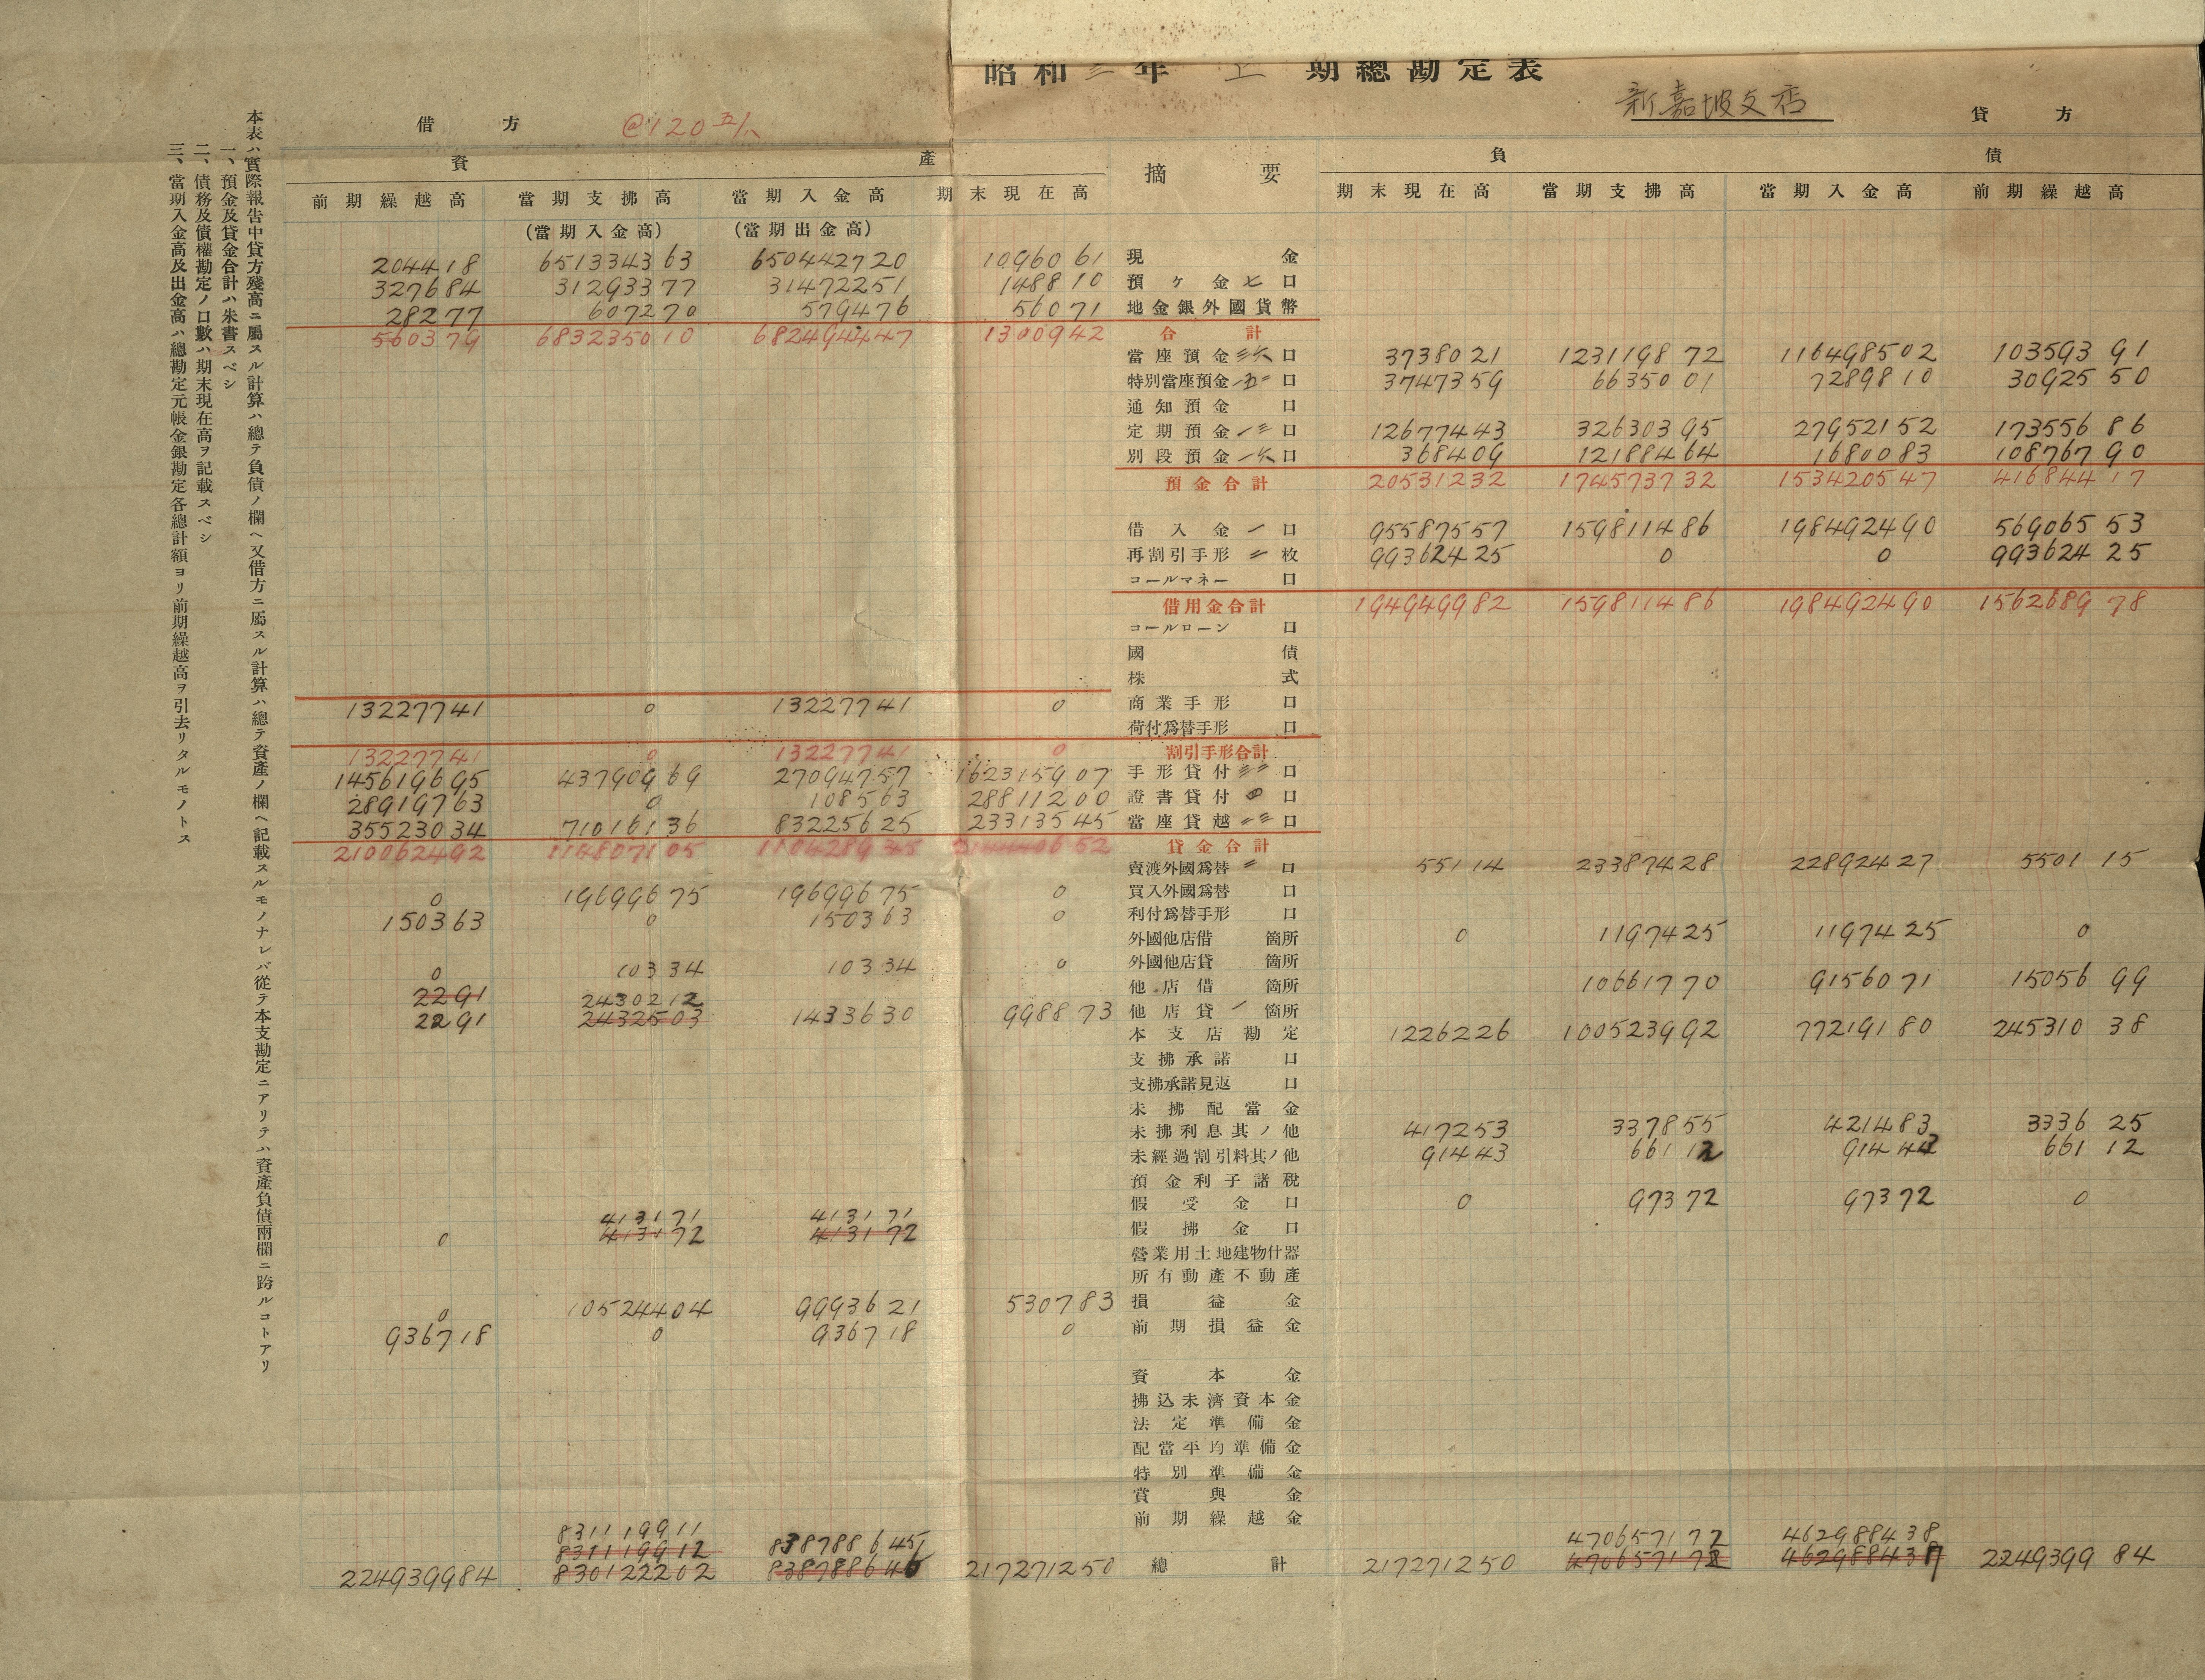 昭和三年 上 期總勘定表
新嘉坡支店
借 方 @120 五/八 貸 方
資 產 摘 要 負 債
前期繰越高 當期支拂高 當期入金高 期末現在高 期末現在高 當期支拂高 當期入金高 前期繰越高
(當期入金高) (當期出金高)
204418 651334363 650442720 1096061 現 金
327684 31293377 31472251 148810 預ヶ金 七 口
28277 607270 579476 56071 地金銀外國貨幣
560379 683235010 682494447 1300942 合 計
當座預金 三六 口 3738021 123119872 116498502 10359391
特別當座預金 一五二 口 3747359 6635001 7289810 3092550
通知預金 口
定期預金 一三 口 12677443 32630395 27952152 17355686
別段預金 一六 口 368409 12188464 1680083 10876790
預金合計 20531232 174573732 153420547 41684417
借入金 一 口 95587557 159811486 198492490 56906553
再割引手形 二 枚 99362425 0 0 99362425
コールマネー 口
借用金合計 194949982 159811486 198492490 156268978
コールローン 口
國 債
株 式
13227741 0 13227741 0 商業手形 口
荷付爲替手形 口
13227741 0 13227741 0 割引手形合計
145619695 43790969 27094757 162315907 手形貸付 三三 口
28919763 0 108563 28811200 證書貸付 四 口
35523034 71016136 83225625 23313545 當座貸越 二三 口
210062492 114807105 110428945 214440652 貸金合計
賣渡外國爲替 二 口 55114 23387428 22892427 550115
0 19699675 19699675 0 買入外國爲替 口
150363 0 150363 0 利付爲替手形 口
外國他店借 箇所 0 1197425 1197425 0
0 10334 10334 0 外國他店貸 箇所
他店借 箇所 10661770 9156071 1505699
2291 2430212
2291 2432503 1433630 998873 他店貸 一 箇所
本支店勘定 1226226 100523992 77219180 24531038
支拂承諾 口
支拂承諾見返 口
未拂配當金
未拂利息其ノ他 417253 337855 421483 333625
未經過割引料其ノ他 91443 66112 91443 66112
預金利子諸稅
假受金 口 0 97372 97372 0
413171 413171
0 413172 413172 假拂金 口
營業用土地建物什器
所有動產不動產
0 10524404 9993621 530783 損益金
936718 0 936718 0 前期損益金
資本金
拂込未濟資本金
法定準備金
配當平均準備金
特別準備金
賞與金
前期繰越金
831119911 838788645 470657172 462988438
831119912
224939984 830122202 838788646 217271250 總 計 217271250 470657172 462988437 224939984
本表ハ實際報告中貸方殘高ニ屬スル計算ハ總テ負債ノ欄ヘ又借方ニ屬スル計算ハ總テ資產ノ欄ヘ記載スルモノナレバ從テ本支勘定ニアリテハ資產負債兩欄ニ跨ルコトアリ
一、預金及貸金合計ハ朱書スベシ
二、債務及債權勘定ノ口數ハ期末現在高ヲ記載スベシ
三、當期入金高及出金高ハ總勘定元帳金銀勘定各總計額ヨリ前期繰越高ヲ引去リタルモノトス